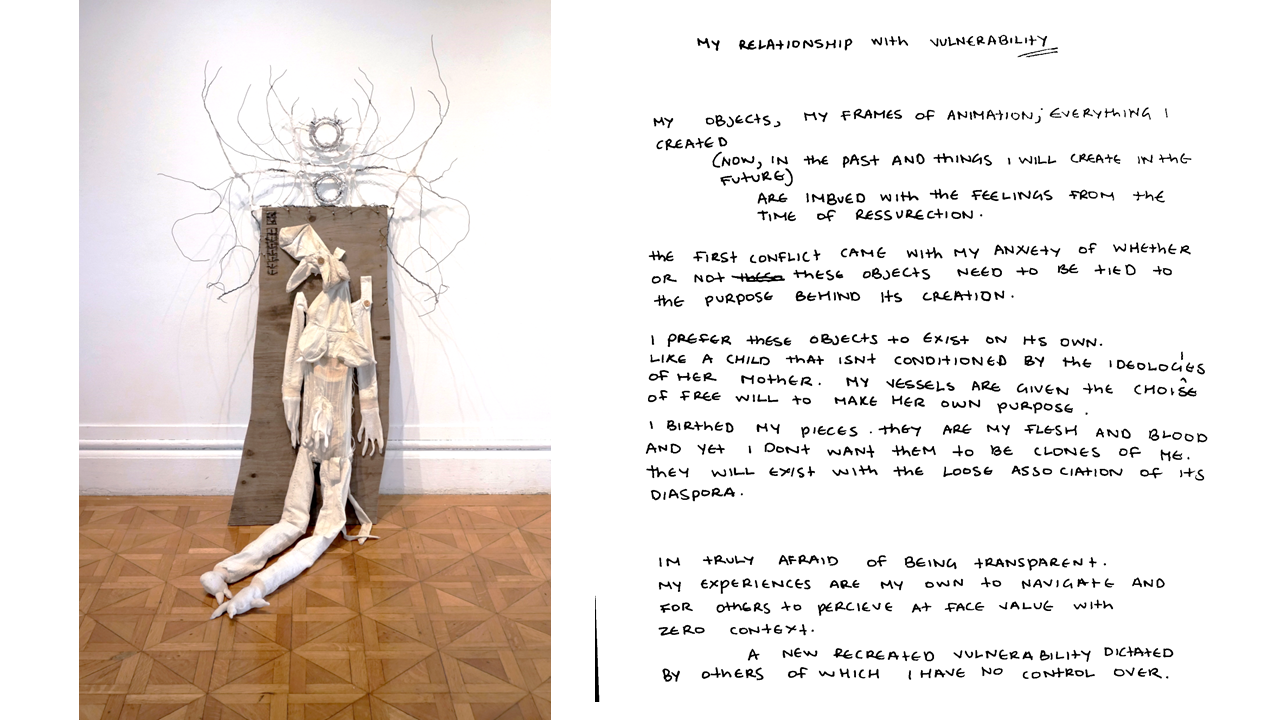 MY RELATIONSHIP WITH VULNERABILITY
MY OBJECTS, MY FRAMES OF ANIMATION; EVERYTHING I
CREATED
(NOW, IN THE PAST AND THINGS I WILL CREATE IN THE
FUTURE)
ARE IMBUED WITH THE FEELINGS FROM THE
TIME OF RESSURECTION.
THE FIRST CONFLICT CAME WITH MY ANXIETY OF WHETHER
OR NOT these THESE OBJECTS NEED TO BE TIED TO
THE PURPOSE BEHIND ITS CREATION.
I PREFER THESE OBJECTS TO EXIST ON ITS OWN.
LIKE A CHILD THAT ISNT CONDITIONED BY THE IDEOLOGIES
OF HER MOTHER. MY VESSELS ARE GIVEN THE CHOISE
OF FREE WILL TO MAKE HER OWN PURPOSE.
I BIRTHED MY PIECES. THEY ARE MY FLESH AND BLOOD
AND YET I DONT WANT THEM TO BE CLONES OF ME.
THEY WILL EXIST WITH THE LOOSE ASSOCIATION OF ITS
DIASPORA.
IM TRULY AFRAID OF BEING TRANSPARENT.
MY EXPERIENCES ARE MY OWN TO NAVIGATE AND
FOR OTHERS TO PERCIEVE AT FACE VALUE WITH
ZERO CONTEXT.
A NEW RECREATED VULNERABILITY DICTATED
BY OTHERS OF WHICH I HAVE NO CONTROL OVER.